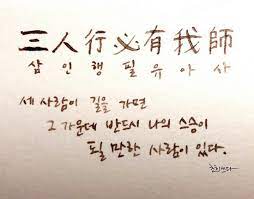 三人行必有我師
삼 인 행 필 유 아 사
세 사람이 길을 가면
그 가운데 반드시 나의 스승이
될 만한 사람이 있다.